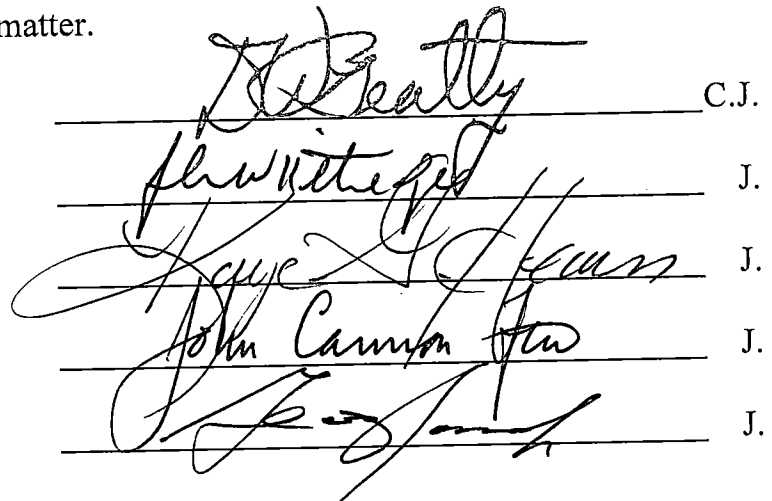 matter.
DW Beatty C.J.
J.
Kaye G. Hearn J.
John Cannon Few J.
J.